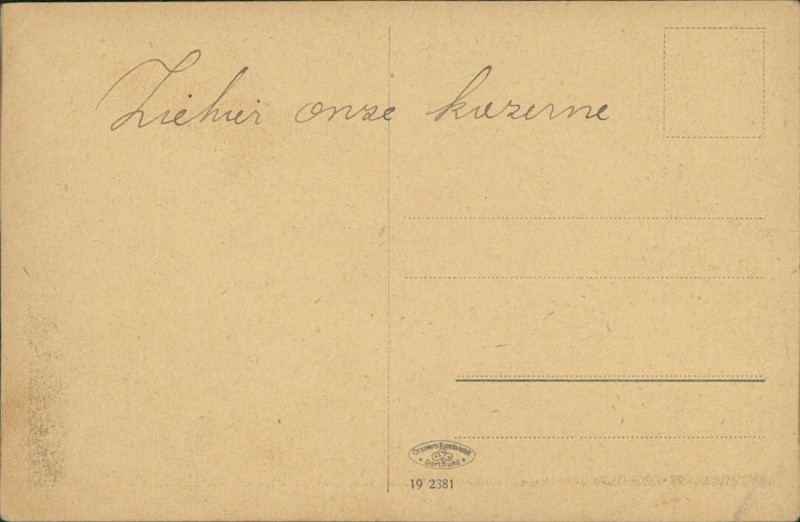 Ziehier onze kazerne
Dortmund
19 2381